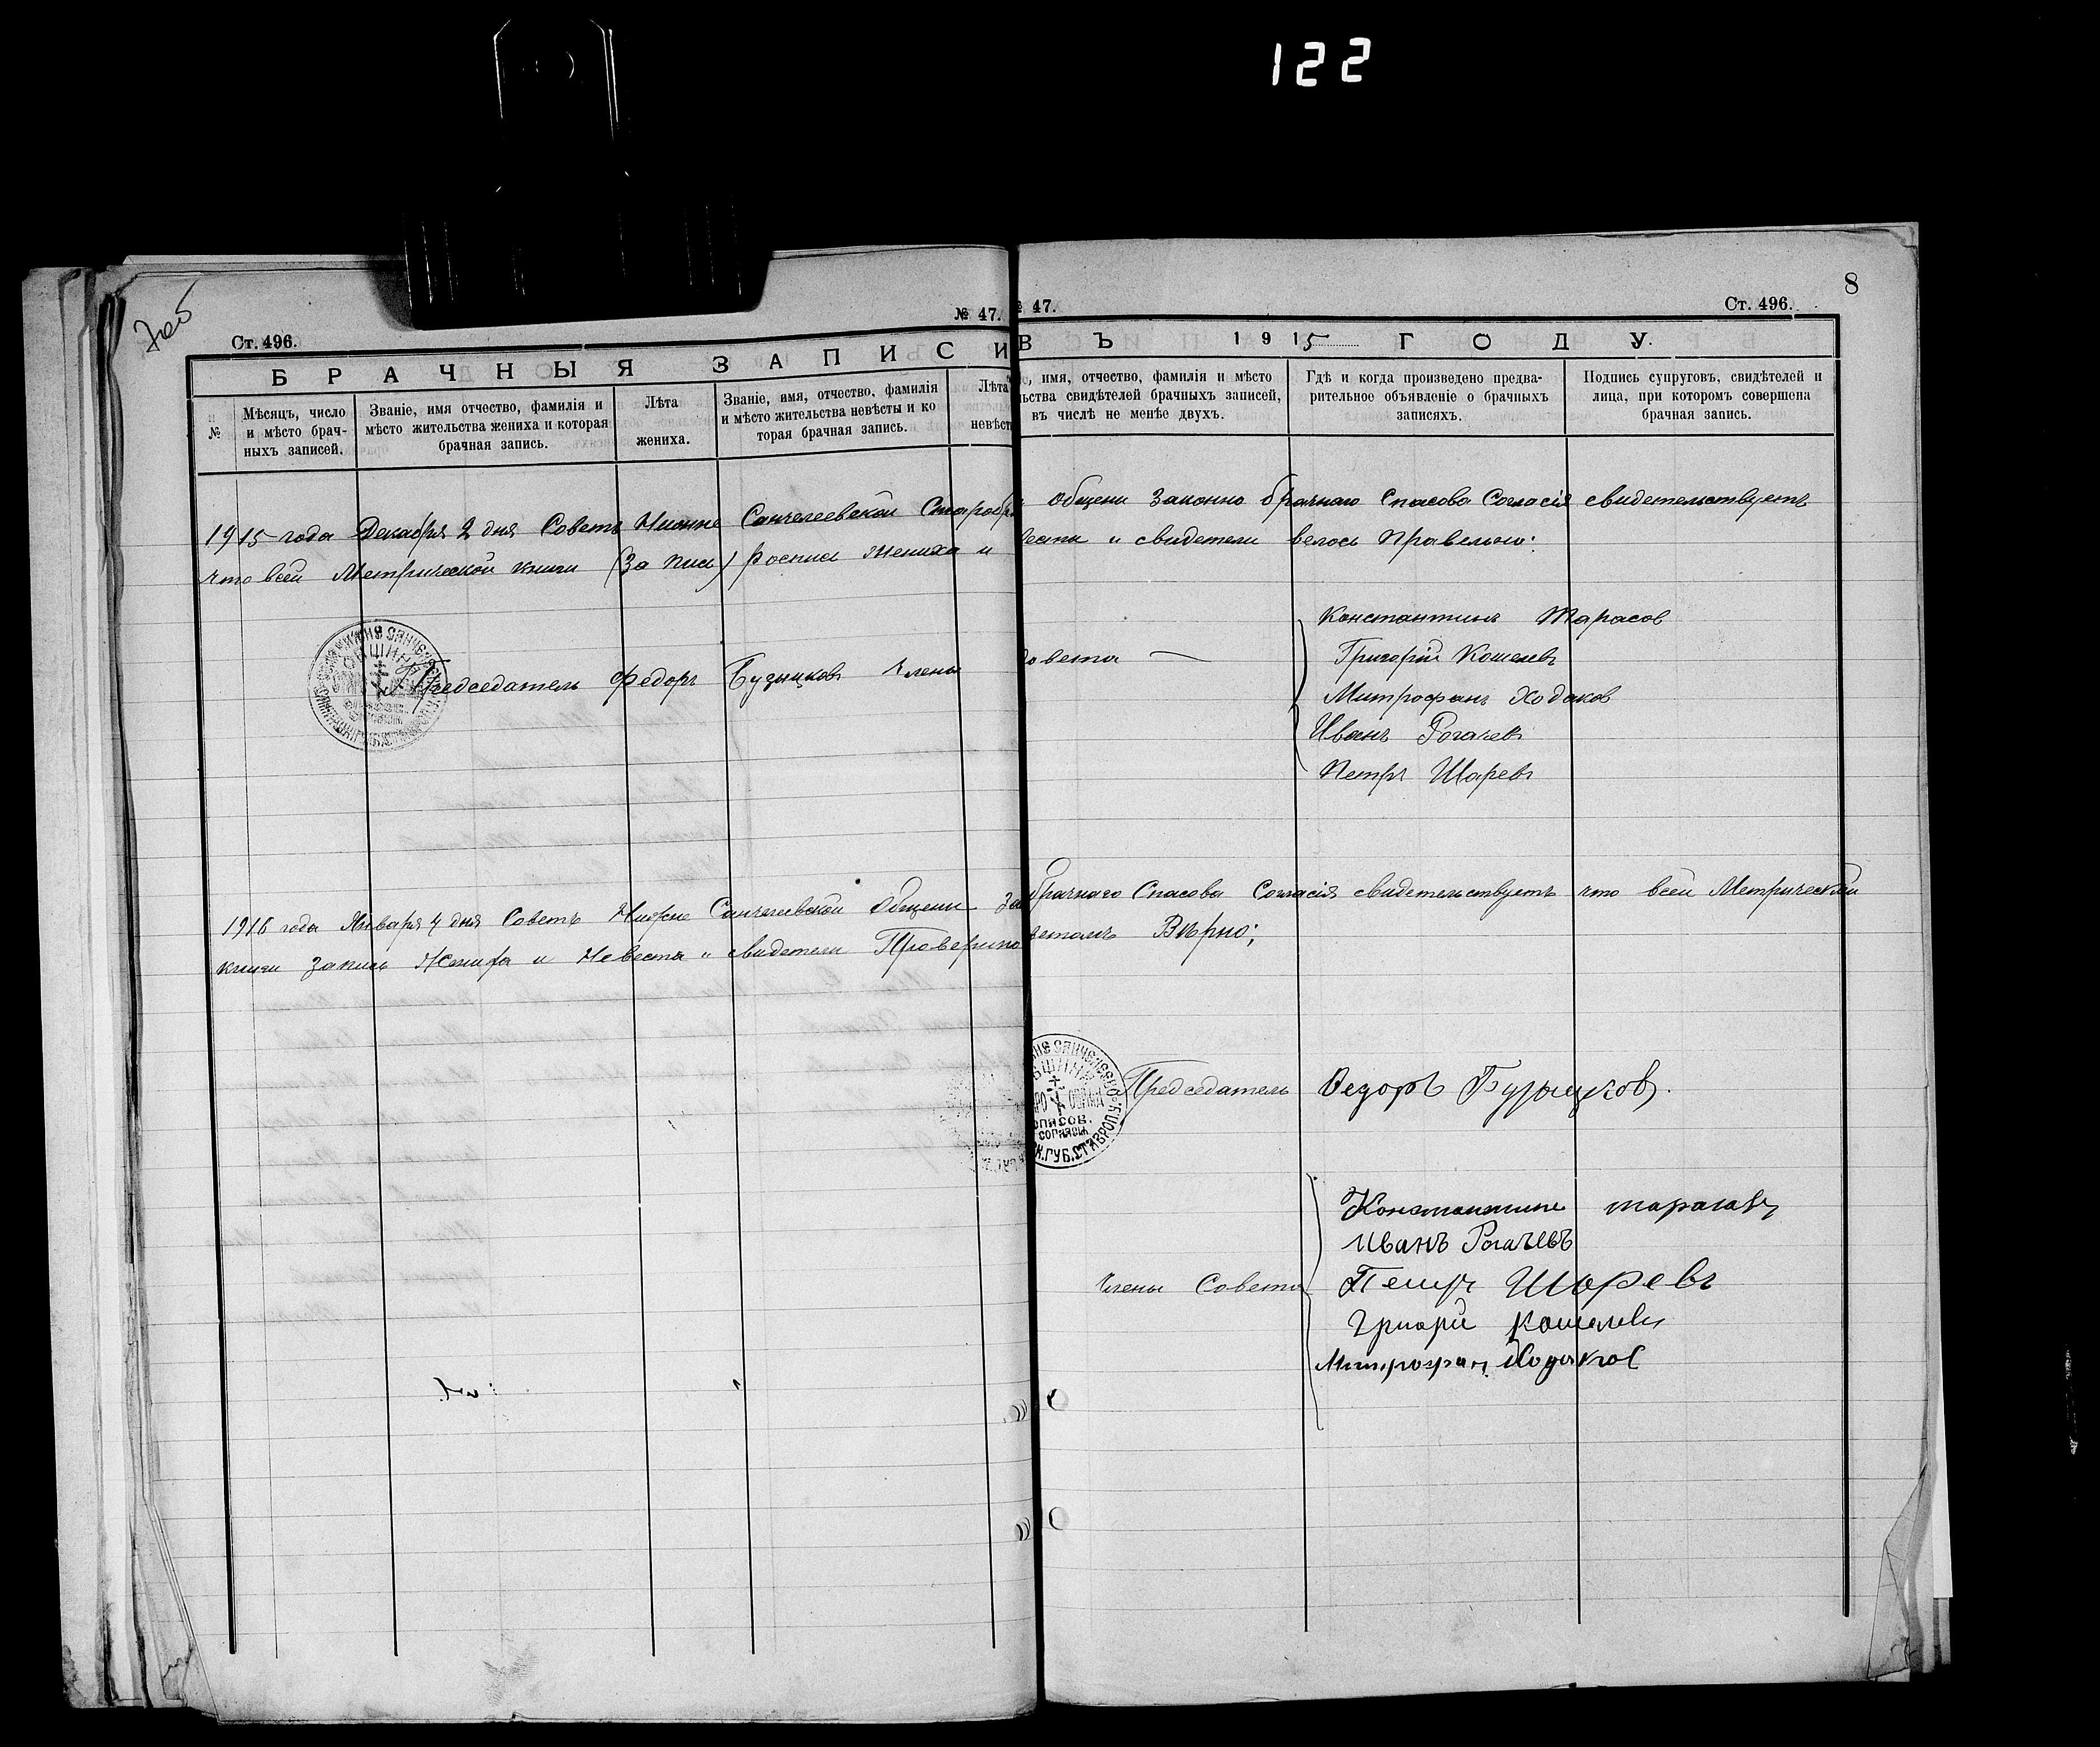 122
8
Ст. 496.
№ 47.
№ 47.
Ст. 496.
БРАЧНЫЯ ЗАПИСИ
ВЪ 1915 ГОДУ.
№
Мѣсяцъ, число
и мѣсто брач-
ныхъ записей.
Званіе, имя отчество, фамилія и
мѣсто жительства жениха и которая
брачная запись.
Лѣта
жениха.
Званіе, имя, отчество, фамилія
и мѣсто жительства невѣсты и ко
торая брачная запись.
Лѣта
невѣст
имя, отчество, фамилія и мѣсто
льства свидѣтелей брачныхъ записей,
въ числѣ не менѣе двухъ.
Гдѣ и когда произведено предва-
рительное объявленіе о брачныхъ
записяхъ.
Подпись супруговъ, свидѣтелей и
лица, при которомъ совершена
брачная запись.
1915 года Декабря 2 дня Советъ Нижне Санчелеевской Старобр Общени Законно брачнаго Спасова Согласія свидетельствуетъ
что всей Метрической книги (За писи) росписи жениха и вести и свидетели велось Правельно:
Председатель Федоръ Бузыцковъ Члены Совета —
Константинъ Тарасов
Григорій Кошелевъ
Митрофанъ Ходаков
Иванъ Рогачевъ
Петръ Шаревъ
1916 года Января 4 дня Советъ Нижне Санчелеевской Общени За брачнаго Спасова Согласія свидетельствуетъ что всей Метрической
книги запись Жениха и Невеста и свидетели Проверино ветомъ Вѣрно;
Председатель Ѳедоръ Бузыцковъ.
Члены Совета
Константинъ тарасавъ
Иванъ Рогачевъ
Петръ Шаревъ
Григари Кошелевъ
Митрофан Ходаков